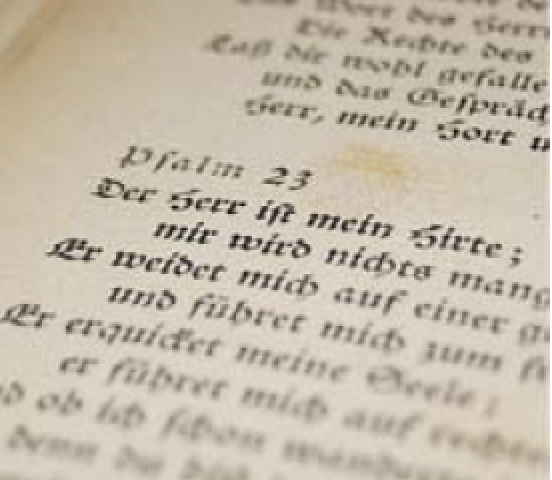 Wort des Herrn
Die Rechte des
Laß dir wohl gefalle
und das Gespräch
Herr, mein Hort u
Psalm 23
Der Herr ist mein Hirte;
mir wird nichts mang
Er weidet mich auf einer g
und führet mich zum fr
Er erquicket meine Seele;
er führet mich auf rechte
ob ich schon wander
denn du bist